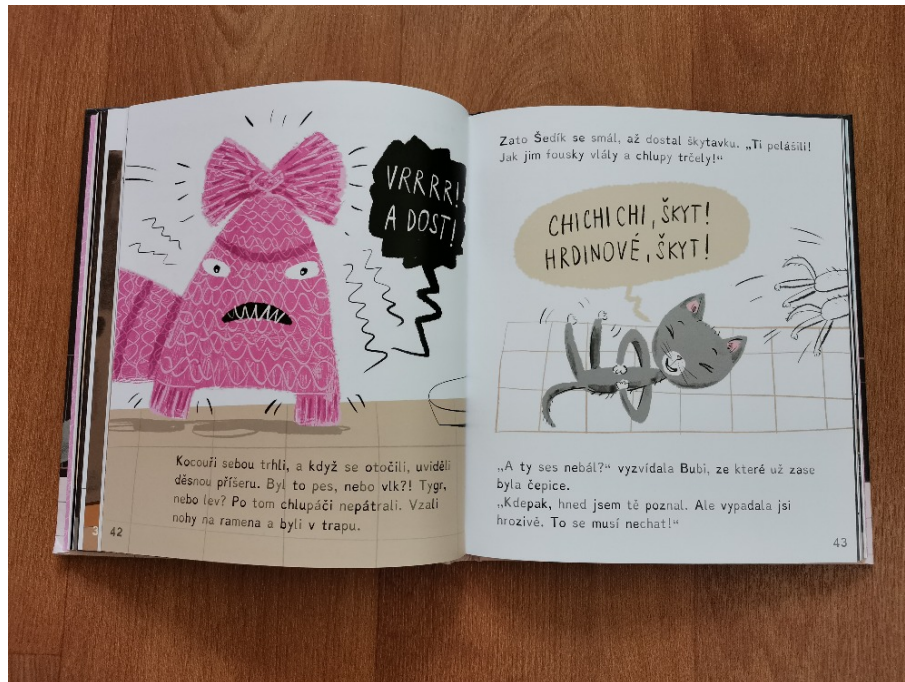 VRRRR!
A DOST!
Kocouři sebou trhli, a když se otočili, uviděli
děsnou příšeru. Byl to pes, nebo vlk?! Tygr,
nebo lev? Po tom chlupáči nepátrali. Vzali
nohy na ramena a byli v trapu.
3 42
Zato Šedík se smál, až dostal škytavku. „Ti pelášili!
Jak jim fousky vlály a chlupy trčely!“
CHICHICHI, ŠKYT!
HRDINOVÉ, ŠKYT!
„A ty ses nebál?“ vyzvídala Bubi, ze které už zase
byla čepice.
„Kdepak, hned jsem tě poznal. Ale vypadala jsi
hrozivě. To se musí nechat!“
43